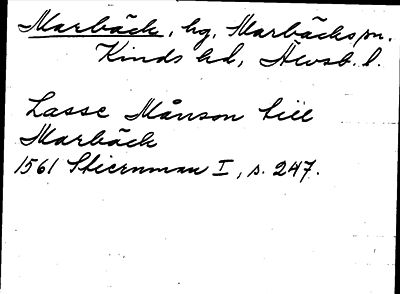 Marbäck, hg, Marbäcks sn.
Kinds hd, Älvsb. l.
Lasse Månson till
Marbäck
1561 Stiernman I, s. 247.